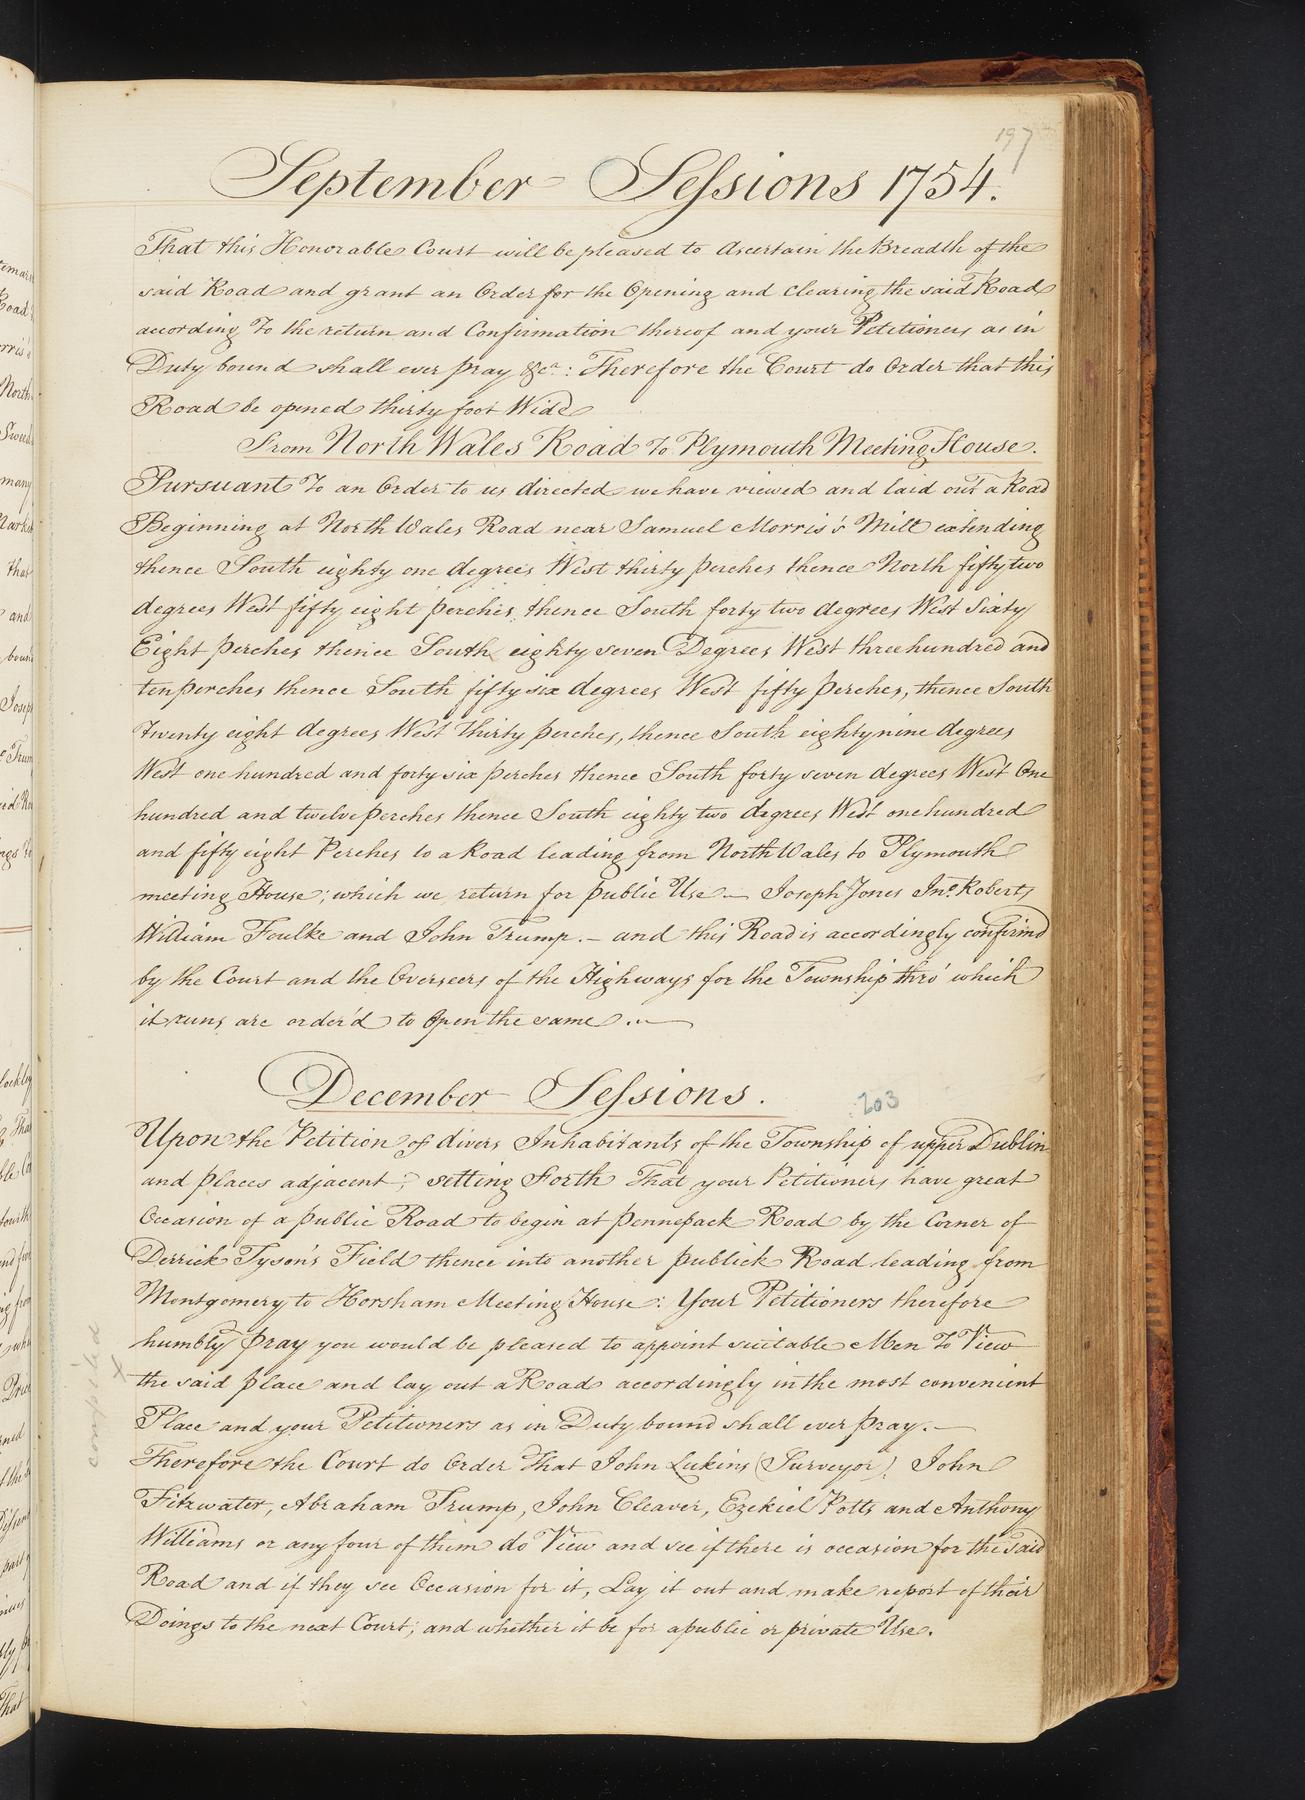 197
September Sessions 1754.
That this Honorable Court will be pleased to Ascertain the Breadth of the
said Road and grant an Order for the Opening and clearing the said Road
acording To the return and Confirmation thereof and your Petitioners as in
Duty bound shall ever pray &ca: Therefore the Court do Order that this
Road be opened thirty foot Wide
From North Wales Road To Plymouth Meeting House.
Pursuant To an Order to us directed we have viewed and laid out a Road
Beginning at North Wales Road near Samuel Morris's Mill extending
thence South eighty one degrees West thirty perches thence North fifty two
degrees West fifty eight perches, thence South forty two degrees West Sixty
Eight perches thence South eighty seven Degrees West three hundred and
ten perches thence South fifty six degrees West fifty perches, thence South
Twenty eight degrees West Thirty perches, thence South eighty nine degrees
West one hundred and forty six perches thence South forty seven degrees West One
hundred and twelve perches thence South eighty two degrees West one hundred
and fifty eight Perches to a Road leading from North Wales to Plymouth
meeting House; which we return for public Use — Joseph Jones Jno. Roberts
William Foulke and John Trump. — and this Road is accordingly confirmd
by the Court and the Overseers of the Highways for the Township thro' which
it runs are order'd to Open the same.
December Sessions.
203
Upon the Petition of divers Inhabitants of the Township of upper Dublin
and places adjacent; setting Forth That your Petitioners have great
Occasion of a public Road to begin at Pennepack Road by the Corner of
Derrick Tyson's Field thence into another publick Road leading from
Montgomery to Horsham Meeting House: Your Petitioners therefore
humbly pray you would be pleased to appoint suitable Men To View
the said place and lay out a Road accordingly in the most convenient
Place and your Petitioners as in Duty bound shall ever pray. —
Therefore the Court do Order That John Lukins (Surveyor), John
Fitzwater, Abraham Trump, John Cleaver, Ezekiel Potts and Anthony
Williams or any four of them do View and see if there is occasion for the said
Road and if they see Occasion for it, Lay it out and make report of their
Doings to the next Court; and whether it be for a public or private Use.